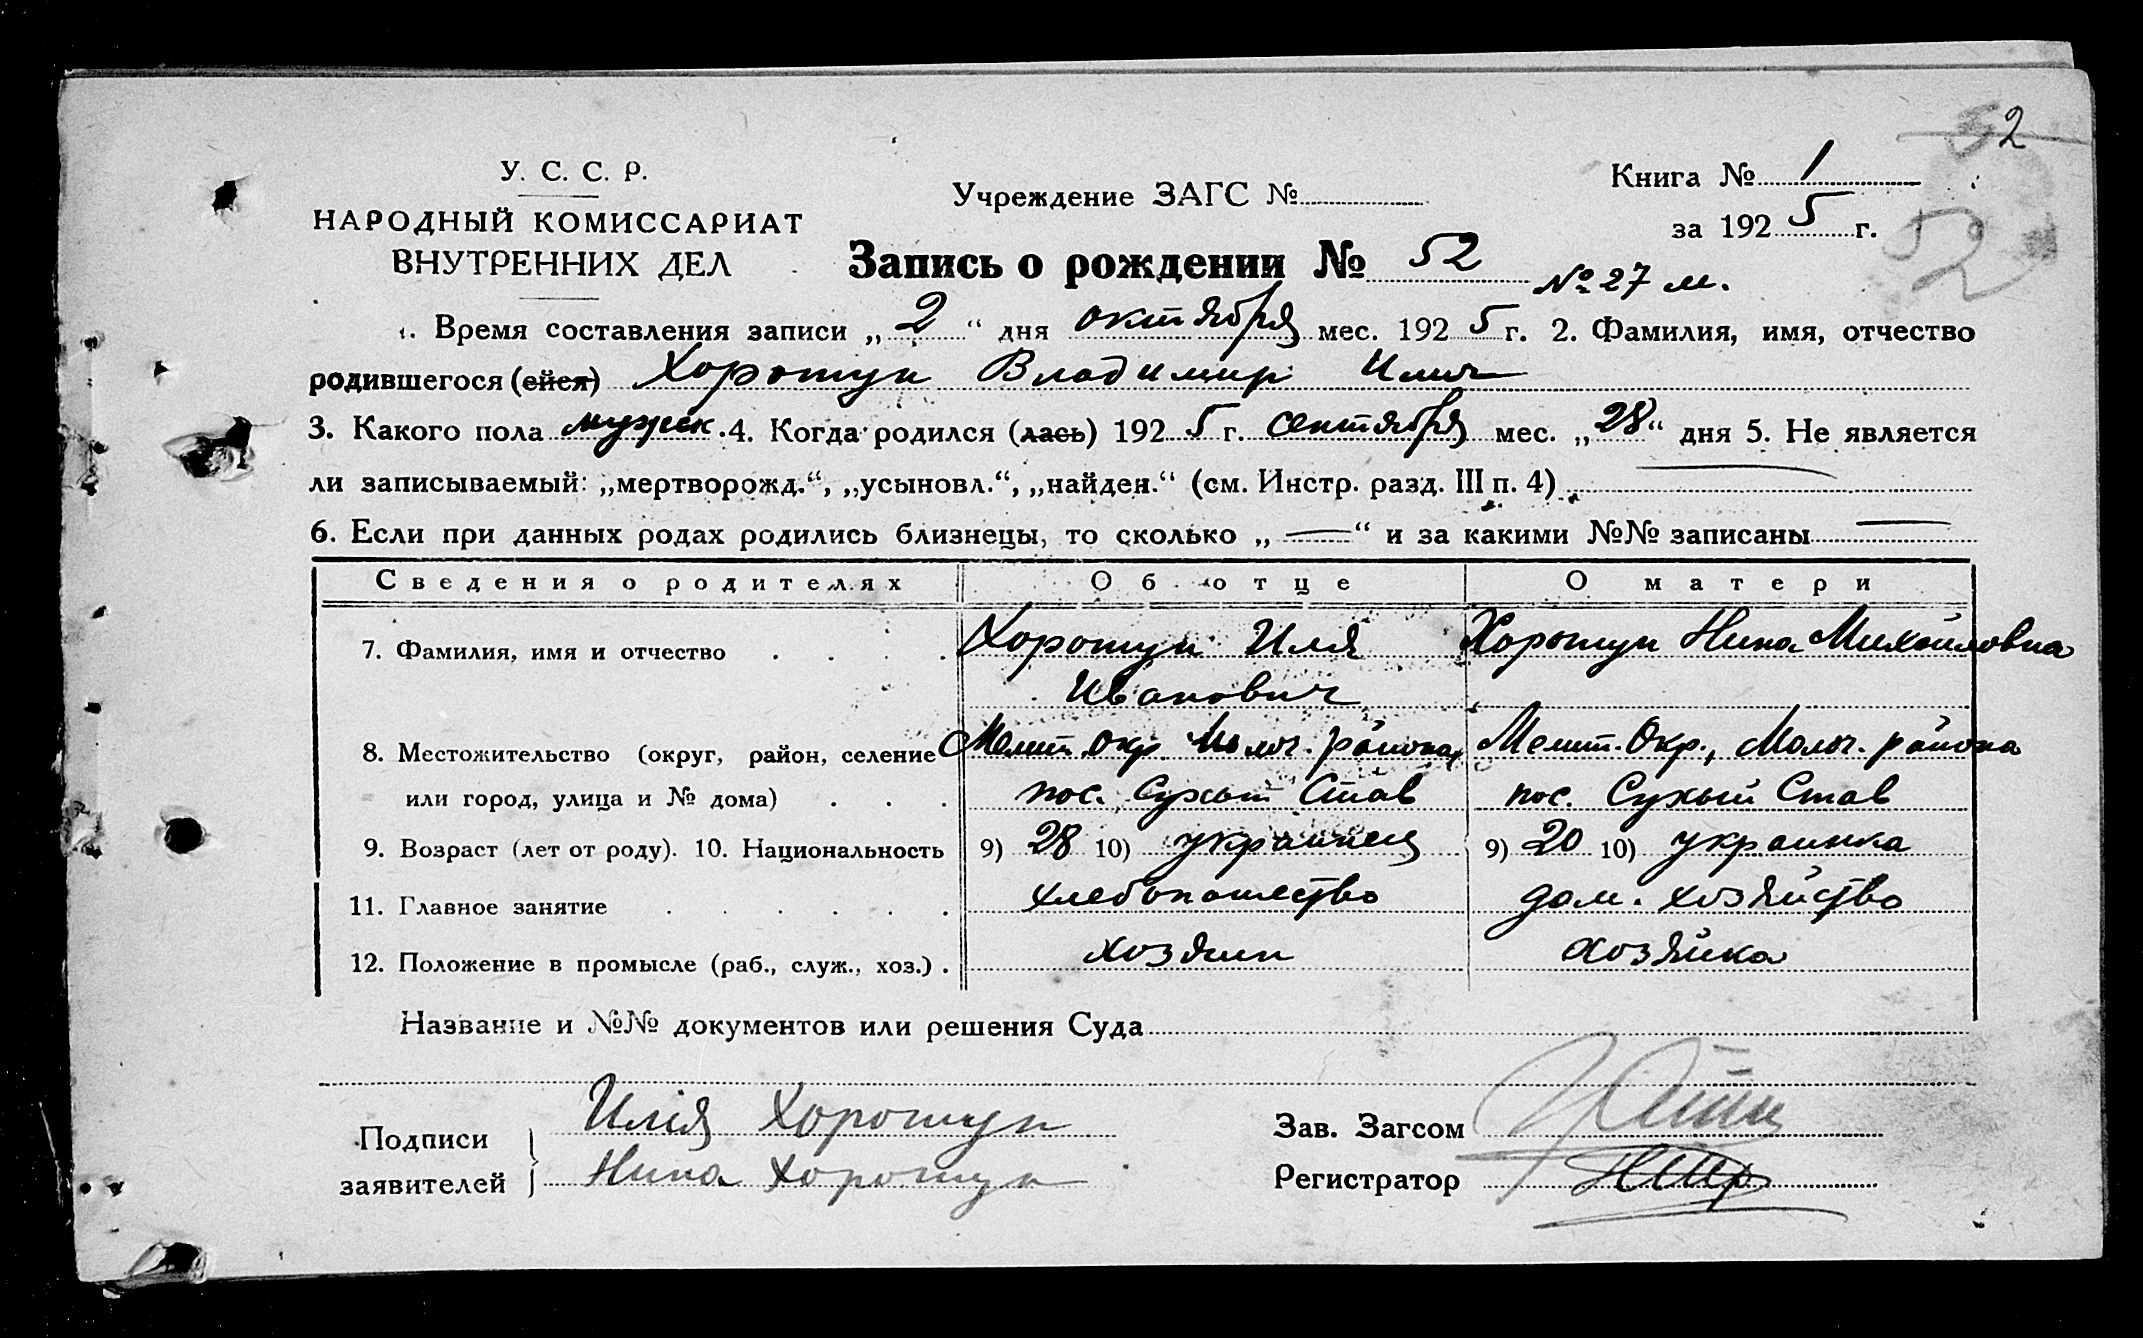 52
У. С. С. Р.
НАРОДНЫЙ КОМИССАРИАТ
ВНУТРЕННИХ ДЕЛ
Учреждение ЗАГС №
Книга № 1
за 1925 г.
52
Запись о рождении № 52 № 27 м.
1. Время составления записи „2“ дня октября мес. 1925 г. 2. Фамилия, имя, отчество
родившегося (ейся) Хорошун Владимир Илич
3. Какого пола мужск. 4. Когда родился (лась) 1925 г. сентября мес. „28“ дня 5. Не является
ли записываемый: „мертворожд.“, „усыновл.“, „найден.“ (см. Инстр. разд. III п. 4) —
6. Если при данных родах родились близнецы, то сколько „—“ и за какими №№ записаны —
Сведения о родителях Об отце О матери
7. Фамилия, имя и отчество Хорошун Иля Хорошун Нина Михайловна
Иванович
8. Местожительство (округ, район, селение Мелит. Окр. Молоч. района Мелит. Окр., Молоч. района
или город, улица и № дома) пос. Сухой Став пос. Сухый Став
9. Возраст (лет от роду). 10. Национальность 9) 28 10) украинец 9) 20 10) украинка
11. Главное занятие хлебопашество дом. хозяйство
12. Положение в промысле (раб., служ., хоз.) хозяин хозяйка
Название и №№ документов или решения Суда
Подписи заявителей
Илія Хорошун
Нина Хорошун
Зав. Загсом
Регистратор